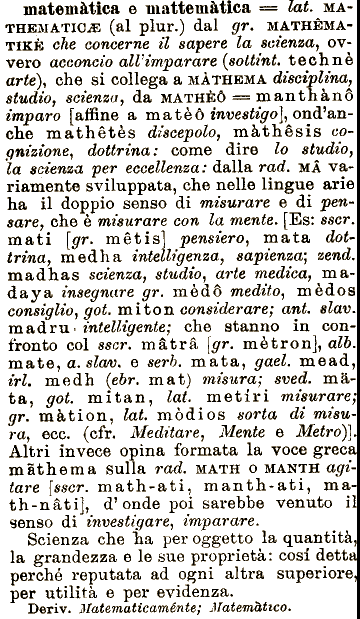 matemàtica e mattemàtica = lat. MA-
THEMATICÆ (al plur.) dal gr. MATHÈMA-
TIKÈ che concerne il sapere la scienza, ov-
vero acconcio all'imparare (sottint. technè
arte), che si collega a MÀTHEMA disciplina,
studio, scienza, da MATHÈÔ = manthànô
imparo [affine a matèô investigo], ond'an-
che mathêtès discepolo, màthêsis co-
gnizione, dottrina: come dire lo studio,
la scienza per eccellenza: dalla rad. MÂ va-
riamente sviluppata, che nelle lingue arie
ha il doppio senso di misurare e di pen-
sare, che è misurare con la mente. [Es: sscr.
mati [gr. mêtis] pensiero, mata dot-
trina, medha intelligenza, sapienza; zend.
madhas scienza, studio, arte medica, ma-
daya insegnare gr. mèdô medito, mèdos
consiglio, got. miton considerare; ant. slav.
madru intelligente; che stanno in con-
fronto col sscr. mâtrâ [gr. mètron], alb.
mate, a. slav. e serb. mata, gael. mead,
irl. medh (ebr. mat) misura; sved. mä-
ta, got. mitan, lat. metíri misurare;
gr. màtion, lat. mòdios sorta di misu-
ra, ecc. (cfr. Meditare, Mente e Metro)].
Altri invece opina formata la voce greca
mãthema sulla rad. MATH o MANTH agi-
tare [sscr. math-ati, manth-ati, ma-
th-nâti], d'onde poi sarebbe venuto il
senso di investigare, imparare.
Scienza che ha per oggetto la quantità,
la grandezza e le sue proprietà: cosí detta
perché reputata ad ogni altra superiore,
per utilità e per evidenza.
Deriv. Matematicaménte; Matemàtico.